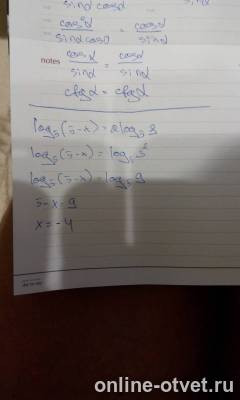 sinα cosα
cos²α / sinα cosα = cosα / sinα
notes cosα / sinα = cosα / sinα
ctgα = ctgα
log₅(5-x) = 2log₅3
log₅(5-x) = log₅3²
log₅(5-x) = log₅9
5-x=9
x=-4
online-otvet.ru